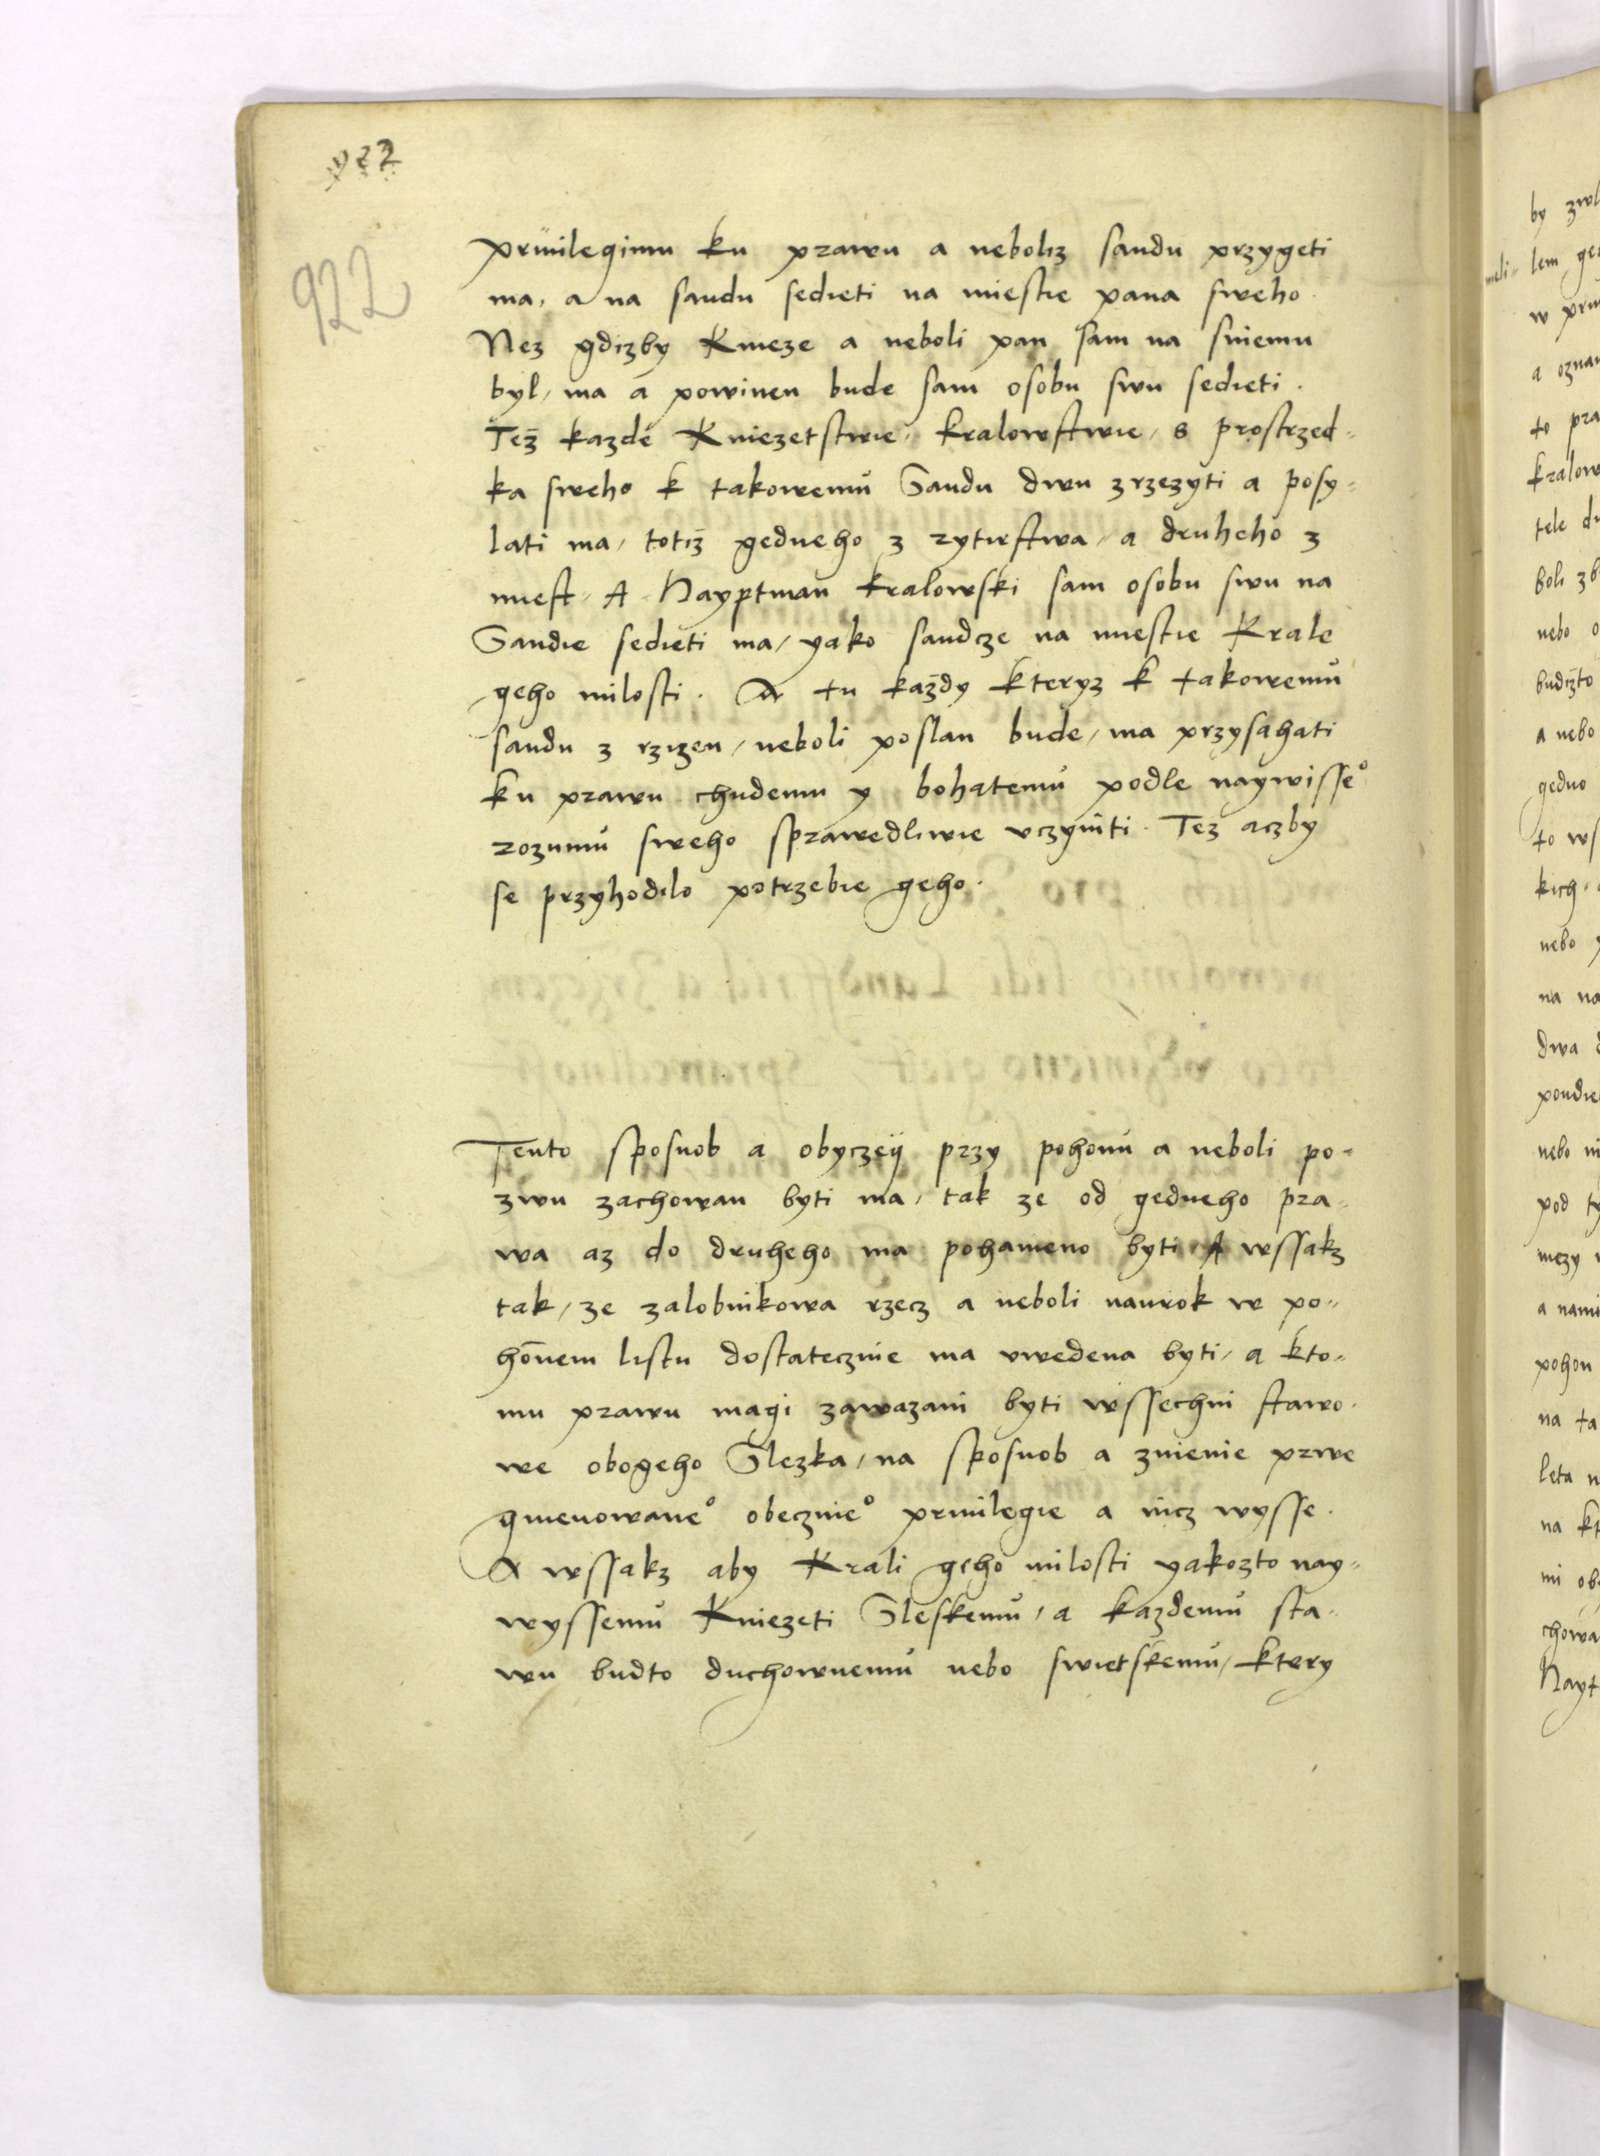 922
922
Priuilegimu ku prawu a neboliz saudu przygeti
ma, a na saudu sedieti na miestie pana sweho.
Nez gdizby Knieze a neboli pan sam na sniemu
byl, ma a powinen bude sam osobu swu sedieti.
Tez kazde Kniezetstwie, kralowstwie, s prostrzed-
ka sweho k takowemu Saudu dwu zrzezyti a posy-
lati ma, totiz gedneho z rytirstwa, a druheho z
miest. A Hayptman kralowski sam osobu swu na
Saudie sedieti ma, yako saudcze na miestie Krale
geho milosti. A tu kazdy kteryz k takowemu
saudu z rzizen, neboli poslan bude, ma przysahati
ku prawu chudemu y bohatemu podle naywisse°
rozumu sweho sprawedliwie vczyniti. Tez aczby
se przyhodilo potrzebie geho.
Tento sposuob a obyczeij przy pohonu a neboli po-
zwu zachowan byti ma, tak ze od gedneho pra-
wa az do druheho ma pohameno byti A wssakz
tak, ze zalobnikowa rzecz a neboli naurok w po-
honem listu dostatecznie ma vwedena byti, a kto-
mu prawu magi zawazani byti wssechni stawo-
we obogeho Slezka, na sposuob a znienie prwe
gmenowane° obecznie° priuilegie a nicz wysse.
A wssakz aby Krali geho milosti yakozto nay-
wyssemu Kniezeti Sleskemu, a kazdemu sta-
wu budto duchownemu nebo swietskemu, ktery